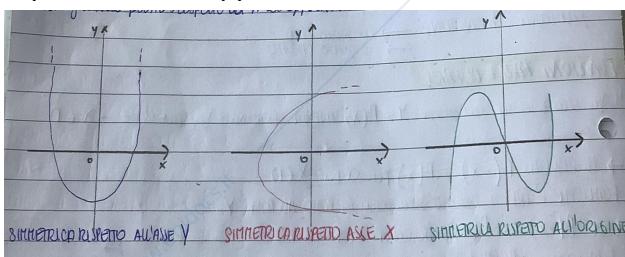 y y y
o x o x o x
SIMMETRICA RISPETTO ALL'ASSE Y SIMMETRICA RISPETTO ASSE X SIMMETRICA RISPETTO ALL'ORIGINE